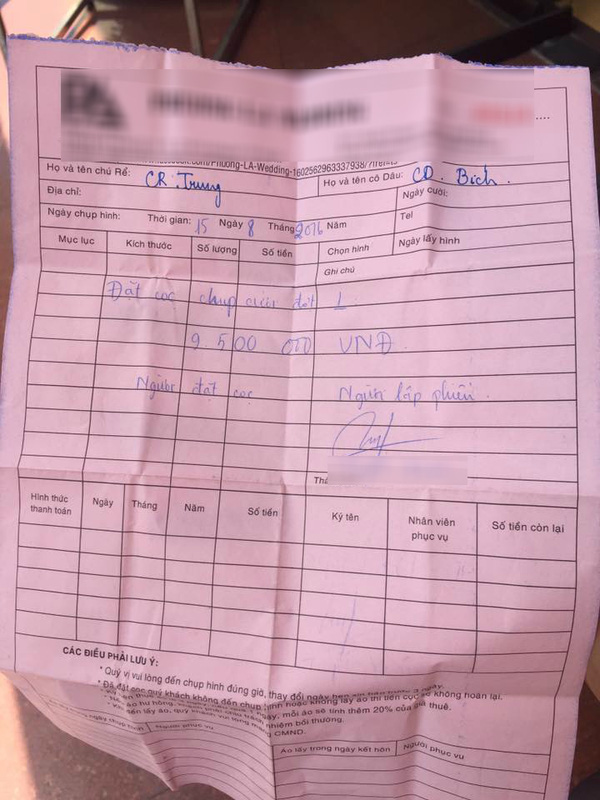 facebook.com/Phuong-LA-Wedding-1602562963337938/?fref=ts
Họ và tên chú Rể: CR. Trung Họ và tên cô Dâu: CD. Bích.
Địa chỉ: Ngày cưới:
Ngày chụp hình: Thời gian: 15 Ngày 8 Tháng 2016 Năm Tel
Mục lục Kích thước Số lượng Số tiền Chọn hình Ngày lấy hình
Ghi chú
Đặt cọc chụp cưới đợt 1
9 500 000 VNĐ.
Người đặt cọc Người lập phiếu.
Hình thức thanh toán Ngày Tháng Năm Số tiền Ký tên Nhân viên phục vụ Số tiền còn lại
CÁC ĐIỀU PHẢI LƯU Ý:
* Quý vị vui lòng đến chụp hình đúng giờ, thay đổi ngày
* Đã đặt cọc quý khách không đến chụp hình hoặc không lấy áo thì tiền cọc sẽ không hoàn lại.
mỗi áo sẽ tính thêm 20% của giá thuê.
nhiệm bồi thường.
CMND.
Người phục vụ Áo lấy trong ngày kết hôn Người phục vụ